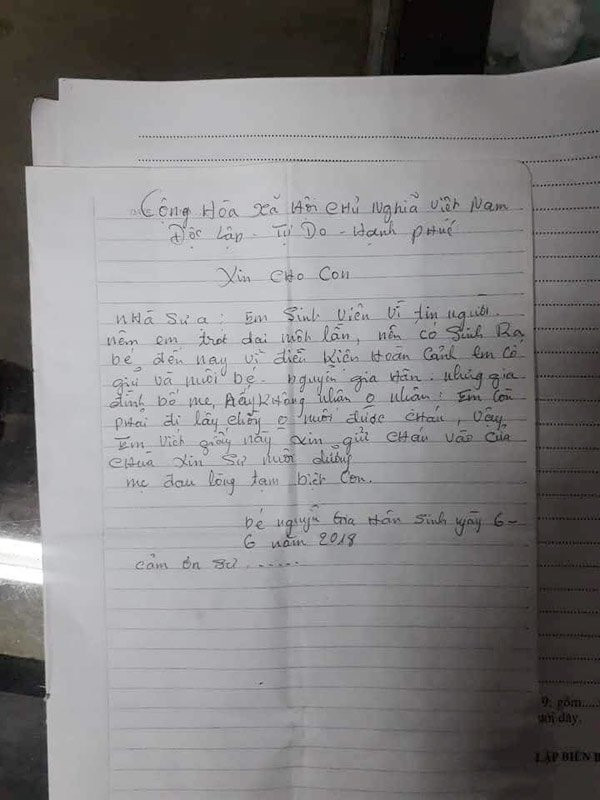 Cộng Hòa Xã Hội Chủ Nghiã Việt Nam
Độc Lập - Tự Do - Hạnh Phúc
Xin Cho Con
nhà Sư ạ: Em Sinh Viên Vì tin người.
nêm em trót dại một lần, nên có Sinh Ra
bé đến nay vì điều Kiện Hoàn Cảnh em Cố
giữ và nuôi bé. nguyễn gia Hân. nhưng gia
đình bố mẹ, Ấy Không nhân o nhân: Em Còn
phải đi lấy chồng o nuôi được cháu, vậy
Em viết giấy này xin gửi cháu vào cửa
chùa xin Sư nuôi dưỡng
mẹ đau lòng tạm biệt con.
bé nguyễn Gia Hân Sinh ngày 6-
6 năm 2018
cảm ơn sư.......
9: gồm.....
LẬP BIÊN B